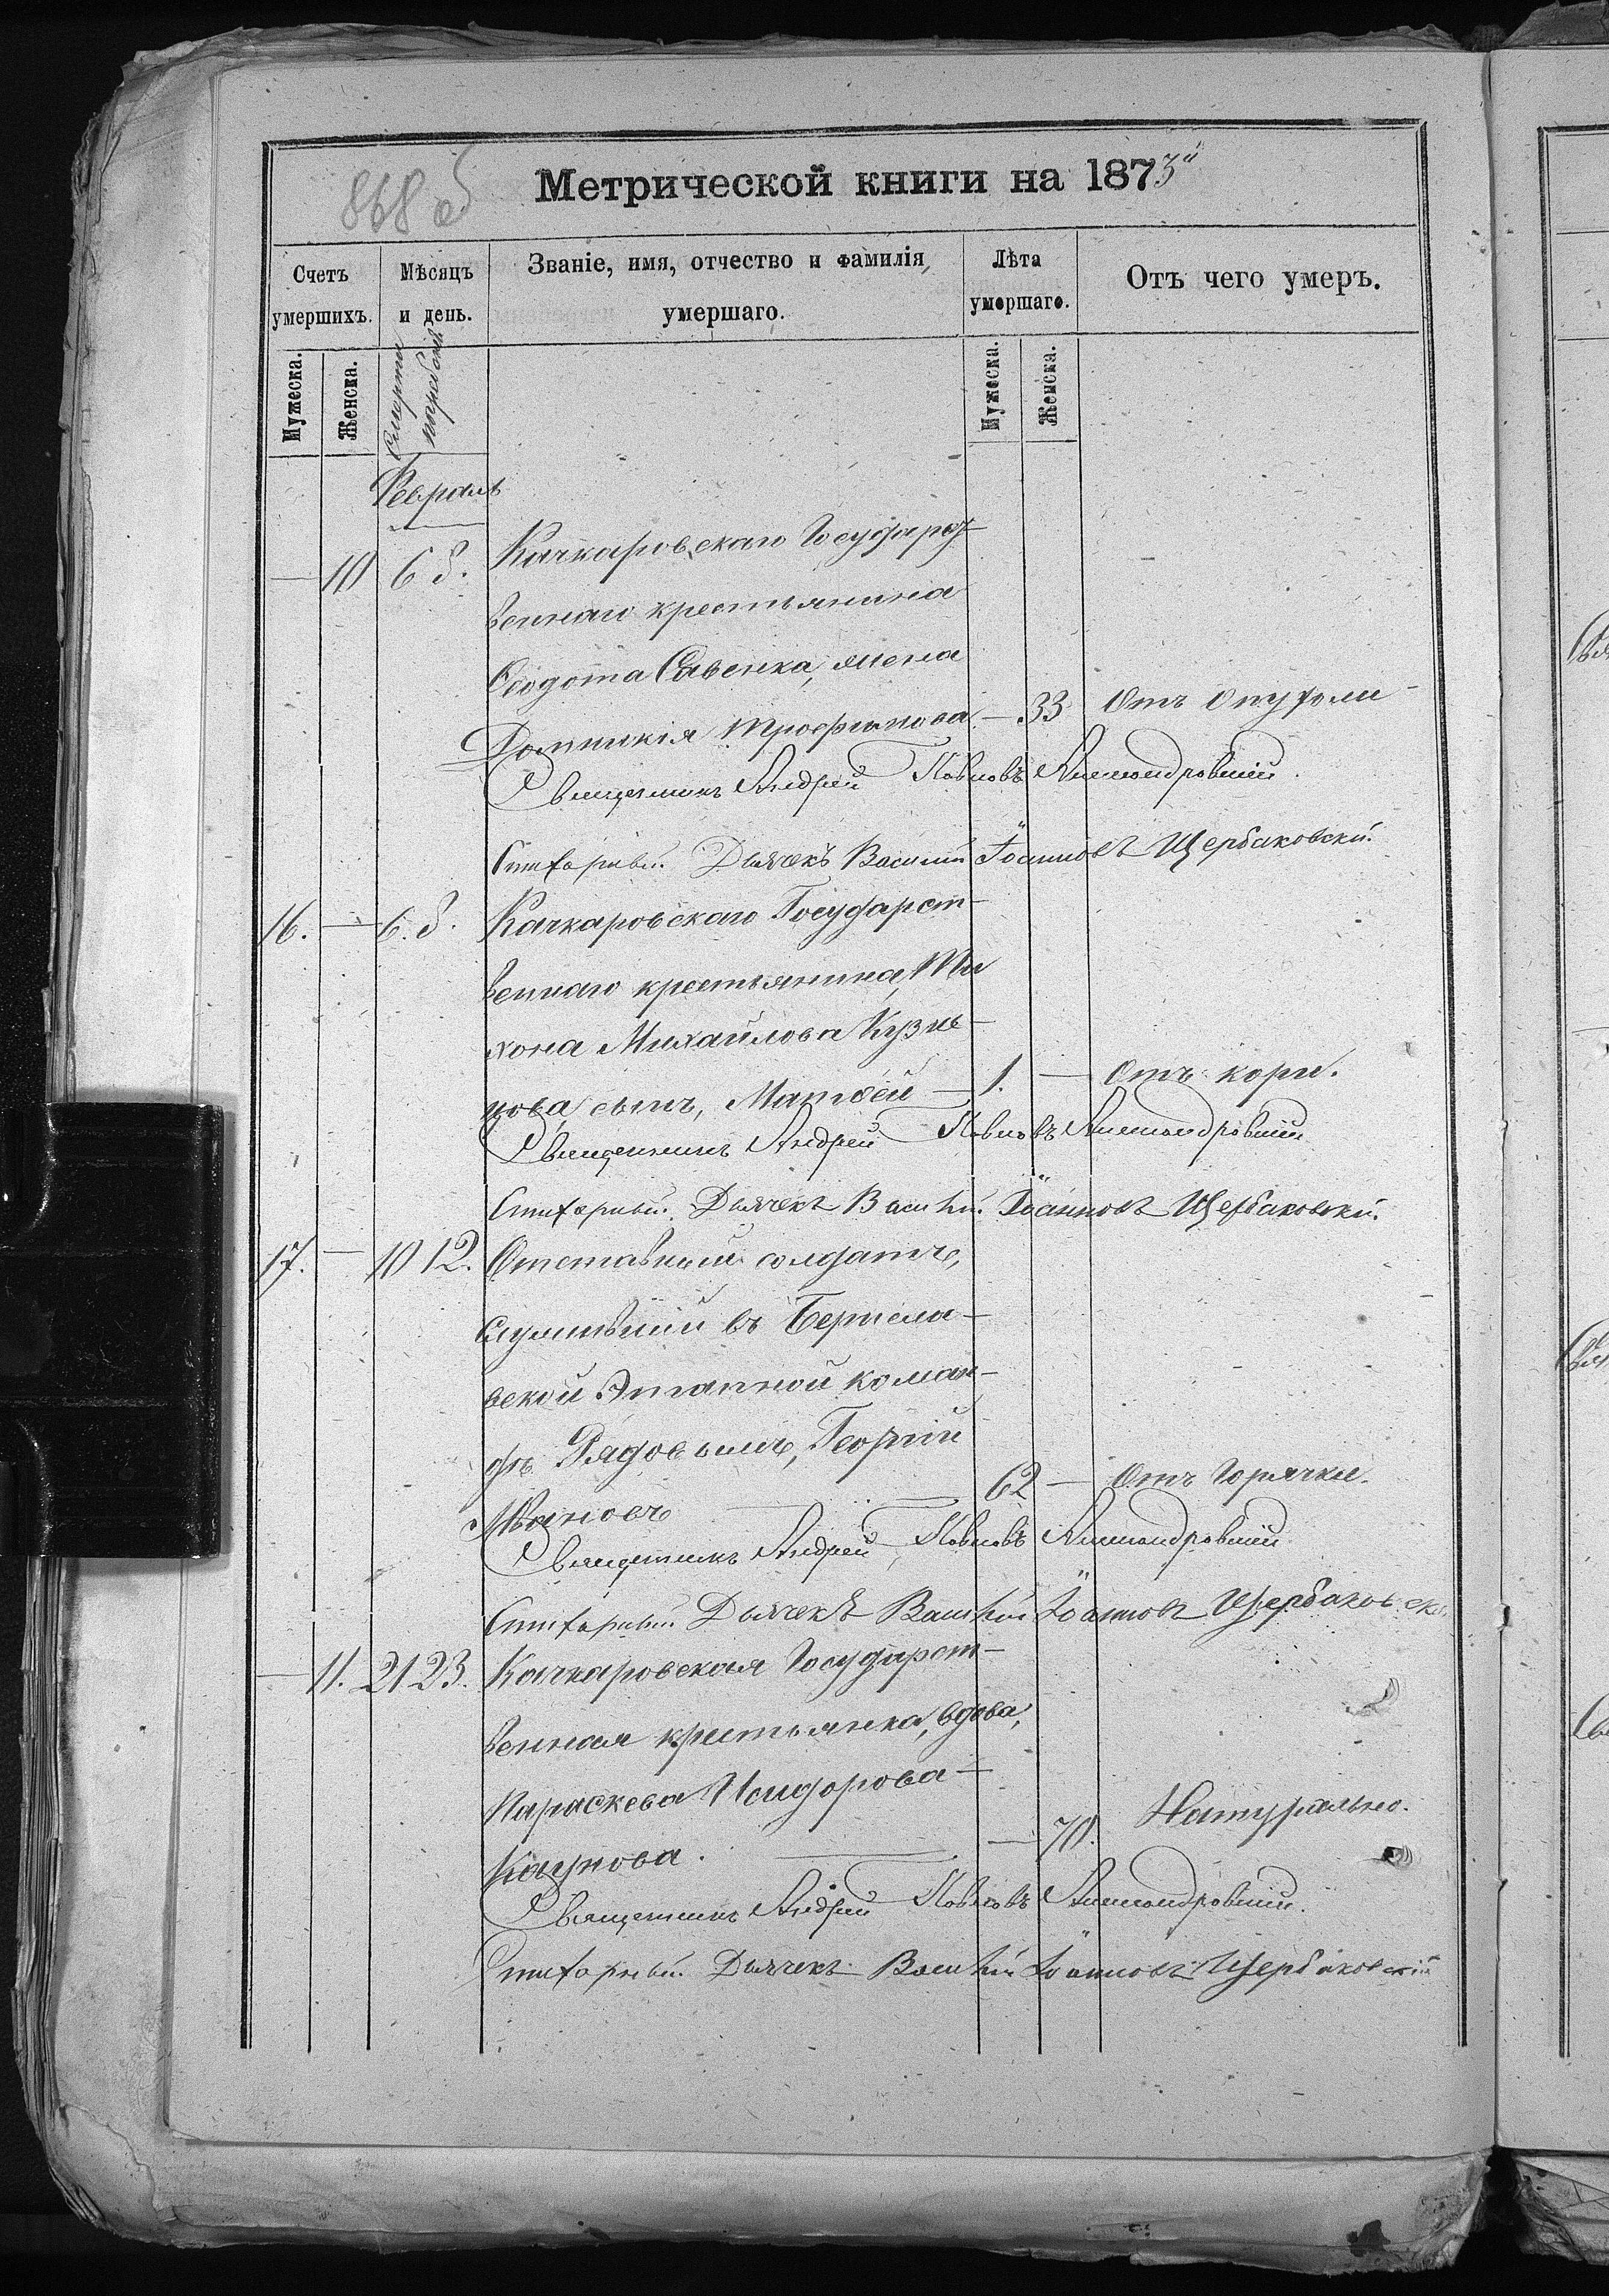 868 об
Метрической книги на 1873й
Счетъ умершихъ.
Мѣсяцъ и день.
Званіе, имя, отчество и фамилія, умершаго.
Лѣта умершаго.
Отъ чего умеръ.
Мужеска.
Женска.
Смерти
погребенія
Мужеска.
Женска.
Февраль
— 10 6 8. Качкаровскаго Государст-
веннаго крестьянина
Ѳеодота Савенка, жена
Домникія Трофимова — 33 Отъ Опухоли
Священникъ Андрей Павловъ Александровскій.
Стихарный Дьячекъ Василій Іоанновъ Щербаковскій.
16. — 6. 8. Качкаровскаго Государст-
веннаго крестьянина, Ти
хона Михайлова Кузне-
цова, сынъ, Матѳей — 1. — Отъ кори.
Священникъ Андрей Павловъ Александровскій
Стихарный Дьячекъ Василій Іоанновъ Щербаковскій.
17. — 10 12. Отставный солдатъ,
служившій въ Берисла-
вской Этапной коман-
дѣ Рядовымъ, Георгій
Ивановъ — 62 — Отъ Горячки.
Священникъ Андрей Павловъ Александровскій
Стихарный Дьячекъ Василій Іоанновъ Щербаковскі
— 11. 21 23. Качкаровская Государст-
венная крестьянка, вдова,
Параскева Исидорова
Каунова. — 70. Натурально.
Священникъ Андрей Павловъ Александровскій.
Стихарный Дьячекъ Василій Іоанновъ Щербаковскій